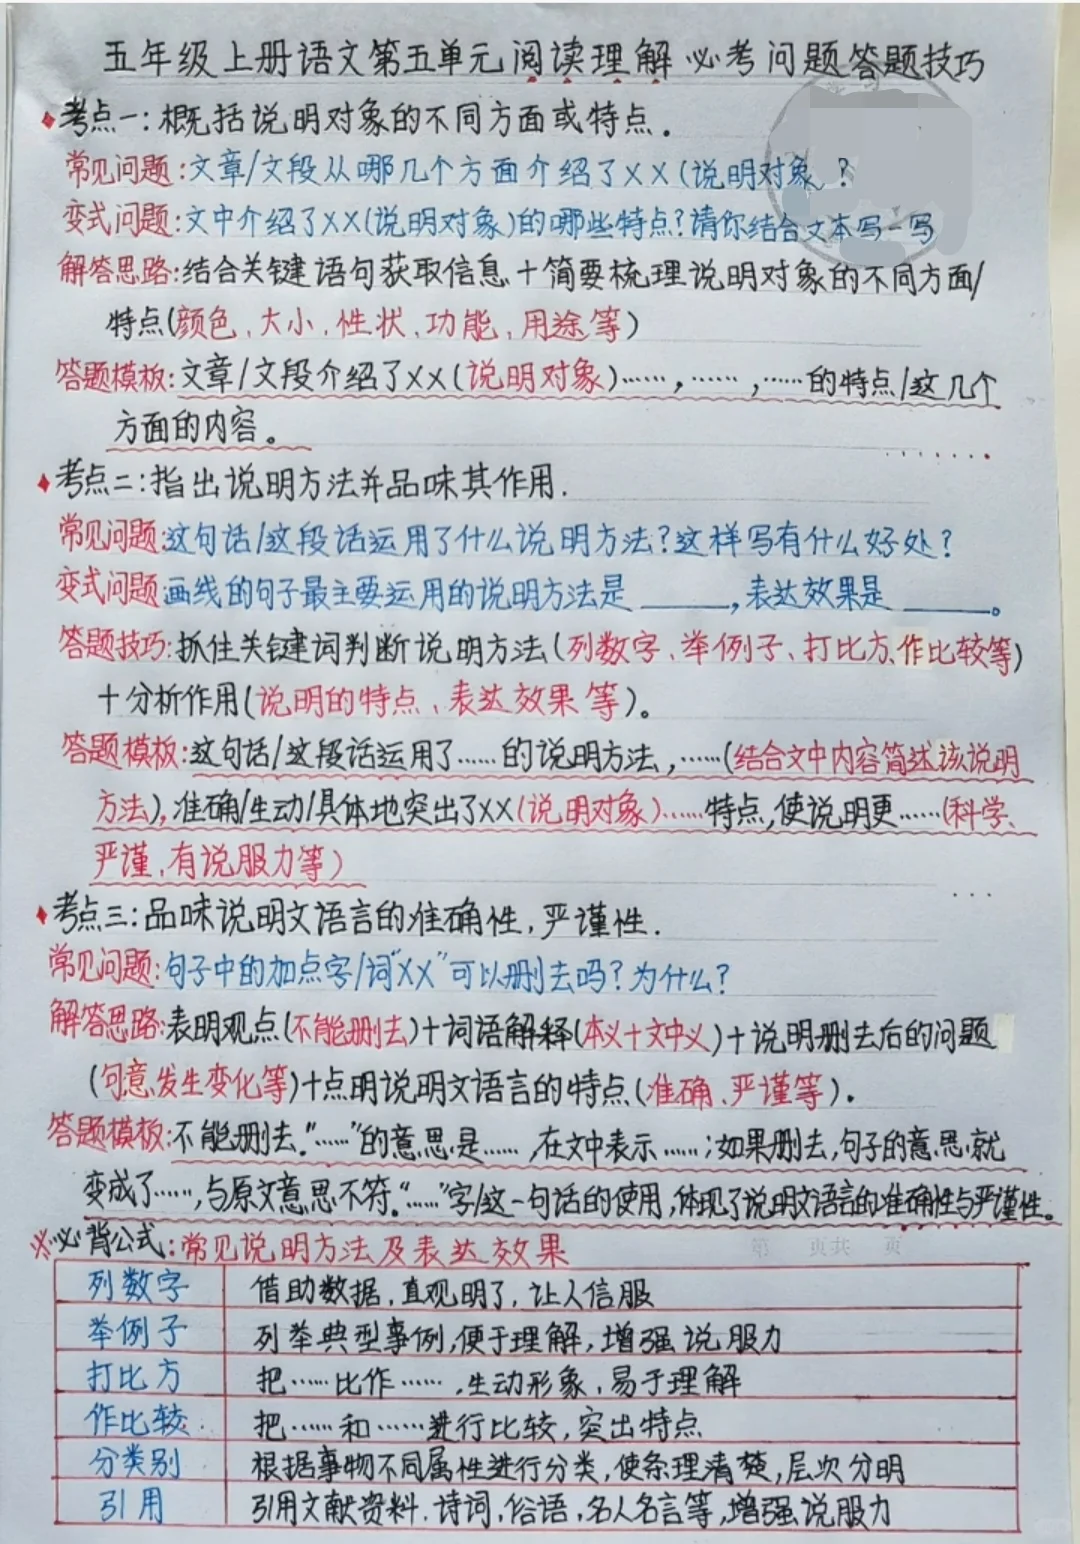 五年级上册语文第五单元阅读理解必考问题答题技巧
考点一:概括说明对象的不同方面或特点.
常见问题:文章/文段从哪几个方面介绍了XX(说明对象?
变式问题:文中介绍了XX(说明对象)的哪些特点?请你结合文本写一写
解答思路:结合关键语句获取信息+简要梳理说明对象的不同方面/
特点(颜色、大小、性状、功能、用途等)
答题模板:文章/文段介绍了XX(说明对象)……,……,……的特点/这几个
方面的内容。
考点二:指出说明方法并品味其作用.
常见问题:这句话/这段话运用了什么说明方法?这样写有什么好处?
变式问题:画线的句子最主要运用的说明方法是______,表达效果是______。
答题技巧:抓住关键词判断说明方法(列数字、举例子、打比方、作比较等)
+分析作用(说明的特点、表达效果等)。
答题模板:这句话/这段话运用了……的说明方法,……(结合文中内容简述该说明
方法),准确/生动/具体地突出了XX(说明对象)……特点,使说明更……(科学、
严谨,有说服力等)
考点三:品味说明文语言的准确性,严谨性.
常见问题:句子中的加点字/词“XX”可以删去吗?为什么?
解答思路:表明观点(不能删去)+词语解释(本义+文中义)+说明删去后的问题
(句意发生变化等)+点明说明文语言的特点(准确、严谨等).
答题模板:不能删去.“……”的意思是……,在文中表示……;如果删去,句子的意思就
变成了……,与原文意思不符.“……”字/这一句话的使用,体现了说明文语言的准确性与严谨性。
※必背公式:常见说明方法及表达效果
第 页共 页
列数字 借助数据,直观明了,让人信服
举例子 列举典型事例,便于理解,增强说服力
打比方 把……比作……,生动形象,易于理解
作比较 把……和……进行比较,突出特点
分类别 根据事物不同属性进行分类,使条理清楚,层次分明
引用 引用文献资料.诗词,俗语,名人名言等,增强说服力